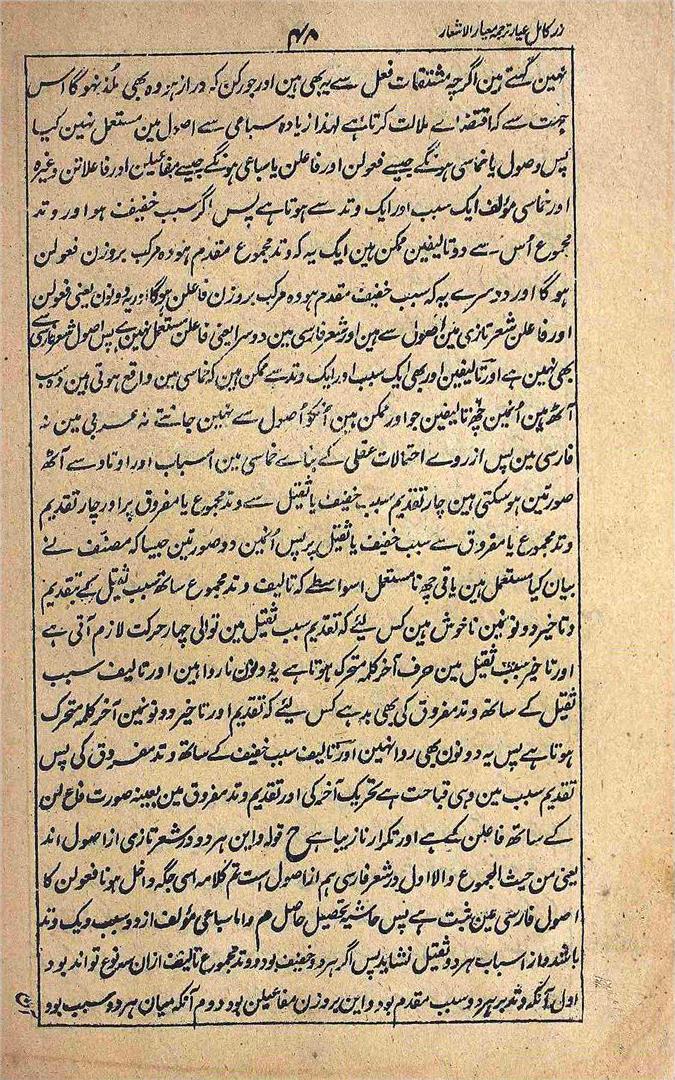 زر کامل عیار ترجمہ معیار الاشعار
۴۸
نہین کہتے ہین اگرچہ مشتقات فعل سے یہ بھی ہین اور جو رکن کہ دراز ہو وہ بھی لذ نہوگا اس
جہت سے کہ اقتضاے ملالت کرتا ہے لہذا زیادہ سباعی سے اصول مین مستعمل نہین کیا
پس اصول یا خماسی ہونگے جیسے فعولن اور فاعلن یا سباعی ہونگے جیسے مفاعیلن اور فاعلاتن وغیرہ
اور خماسی مؤلف ایک سبب اور ایک وتد سے ہوتا ہے پس اگر سبب خفیف ہو اور وتد
مجموع اُس سے دو تالیفین ممکن ہین ایک یہ کہ وتد مجموع مقدم ہو وہ مرکب بروزن فعولن
ہوگا اور دوسرے یہ کہ سبب خفیف مقدم ہو وہ مرکب بروزن فاعلن ہوگا اور یہ دونون یعنی فعولن
اور فاعلن شعر تازی مین اصول سے ہین اور شعر فارسی مین دوسرا یعنی فاعلن مستعمل نہین ہے پس اصول شعر فارسی سے
بھی نہین ہے اور تالیفین اور بھی ایک سبب اور ایک وتد سے ممکن ہین کہ خماسی مین واقع ہوتی ہین وہ سب
آٹھ ہین اُنمین چھ تالیفین جو اور ممکن ہین اُنکو اُصول سے نہین جانتے نہ عربی مین نہ
فارسی مین پس از روے احتمالات عقلی کے بناے خماسی مین اسباب اور اوتاد سے آٹھ
صورتین ہو سکتی ہین چار تقدیم سبب خفیف یا ثقیل سے وتد مجموع یا مفروق پر اور چار تقدیم
وتد مجموع یا مفروق سے سبب خفیف یا ثقیل پر پس اُنمین دو صورتین جیسا کہ مصنف نے
بیان کیا مستعمل ہین باقی چھ نامستعمل اسواسطے کہ تالیف وتد مجموع ساتھ سبب ثقیل کے تقدیم
و تاخیر دونونمین ناخوش ہین کس لئے کہ تقدیم سبب ثقیل مین توالی چہار حرکت لازم آتی ہے
اور تاخیر سبب ثقیل مین حرف آخر کلمہ متحرک ہوتا ہے یہ دونون ناروا ہین اور تالیف سبب
ثقیل کے ساتھ وتد مفروق کی بھی بد ہے کس لئے کہ تقدیم اور تاخیر دونونمین آخر کلمہ متحرک
ہوتا ہے پس یہ دونون بھی روا نہین اور تالیف سبب خفیف کے ساتھ وتد مفروق کی پس
تقدیم سبب مین وہی قباحت ہے تحریک آخر کی اور تقدیم وتد مفروق مین بعینہ صورت فاع لن
کے ساتھ فاعلن کے ہے اور تکرار نازیبا ہے ح قولہ و این ہر دو در شعر تازی از اصول اند
یعنی من حیث المجموع والا اول در شعر فارسی ہم از اصول است تم کلامہ اسی جگہ داخل ہونا فعولن کا
اصول فارسی مین ثبت ہے پس حاشیہ تحصیل حاصل ہم و اما سباعی مؤلف از دو سبب و یک وتد
باشد و از اسباب ہر دو ثقیل نشاید پس اگر ہر دو خفیف بود و وتد مجموع تالیف ازان سہ نوع تواند بود
اول آنکہ وتد بر ہر دو سبب مقدم بود و این بروزن مفاعیلن بود دوم آنکہ میان ہر دو سبب بود